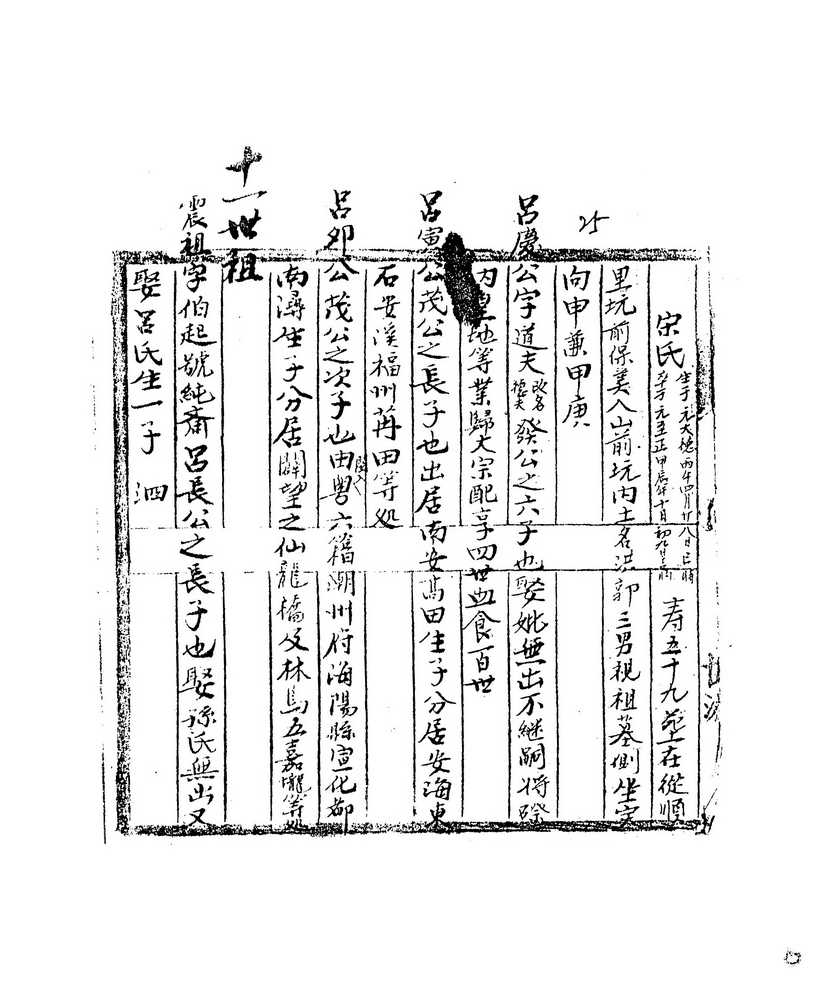 25
宋氏 生于元大德丙午四月廿八日巳時 卒于元至正甲辰年十月初九日 寿五十九 墓在從順
里坑前保美人山前坑内土名洪郭三男視祖墓側坐寅
向申兼甲庚
呂慶公字道夫 改名德夫 發公之六子也娶妣無出不継嗣将
内 地等業歸大宗配享四世血食百世
呂寅公茂公之長子也出居南安高田生子分居安海東
石安溪福州莆田等处
呂卯公茂公之次子也由閩入粤六籍潮州府海陽縣宣化都
南潯生子分居闢望之仙龍橋及林烏五嘉隴等处
十一世祖
震祖字伯起號純齋呂長公之長子也娶孫氏無出又
娶呂氏生一子 泗